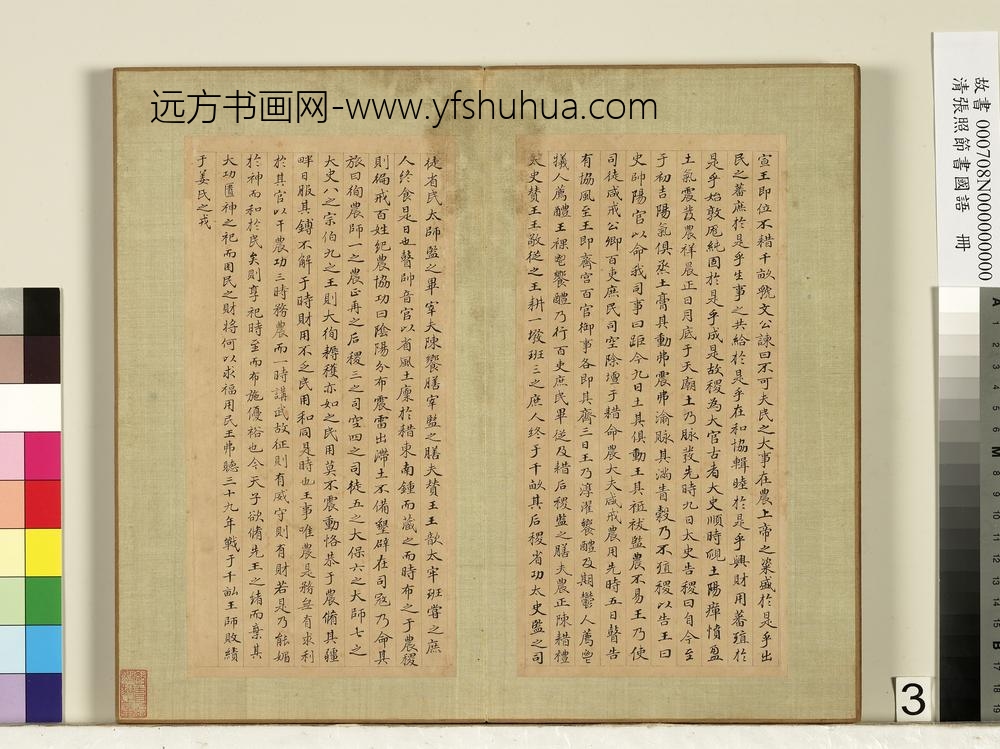 远方书画网-www.yfshuhua.com
故書 000708N000000000
清張照節書國語 冊
宣王即位不耤千畝虢文公諫曰不可夫民之大事在農上帝之粢盛於是乎出
民之蕃庶於是乎生事之共給於是乎在和協輯睦於是乎興財用蕃殖於
是乎始敦厖純固於是乎成是故稷為大官古者太史順時覛土陽癉憤盈
土氣震發農祥晨正日月底于天廟土乃脉發先時九日太史告稷曰自今至
于初吉陽氣俱烝土膏其動弗震弗渝脉其滿眚穀乃不殖稷以告王曰
史帥陽官以命我司事曰距今九日土其俱動王其祗祓監農不易王乃使
司徒咸戒公卿百吏庶民司空除壇于耤命農大夫咸戒農用先時五日瞽告
有協風至王即齋宮百官御事各即其齋三日王乃淳濯饗醴及期鬱人薦鬯
犧人薦醴王祼鬯饗醴乃行百吏庶民畢從及耤后稷監之膳夫農正陳耤禮
太史贊王王敬從之王耕一墢班三之庶人終于千畝其后稷省功太史監之司
徒省民太師監之畢宰夫陳饗膳宰監之膳夫贊王王歆太牢班嘗之庶
人終食是日也瞽帥音官以省風土廩於耤東南鍾而藏之而時布之于農稷
則徧戒百姓紀農協功曰陰陽分布震雷出滯土不備墾辟在司寇乃命其
旅曰徇農師一之農正再之后稷三之司空四之司徒五之大保六之大師七之
大史八之宗伯九之王則大徇耨穫亦如之民用莫不震動恪恭于農脩其疆
畔日服其鎛不解于時財用不乏民用和同是時也王事唯農是務無有求利
於其官以干農功三時務農而一時講武故征則有威守則有財若是乃能媚
於神而和於民矣則享祀時至而布施優裕也今天子欲脩先王之緒而棄其
大功匱神之祀而困民之財將何以求福用民王弗聽三十九年戰于千畝王師敗績
于姜氏之戎
3